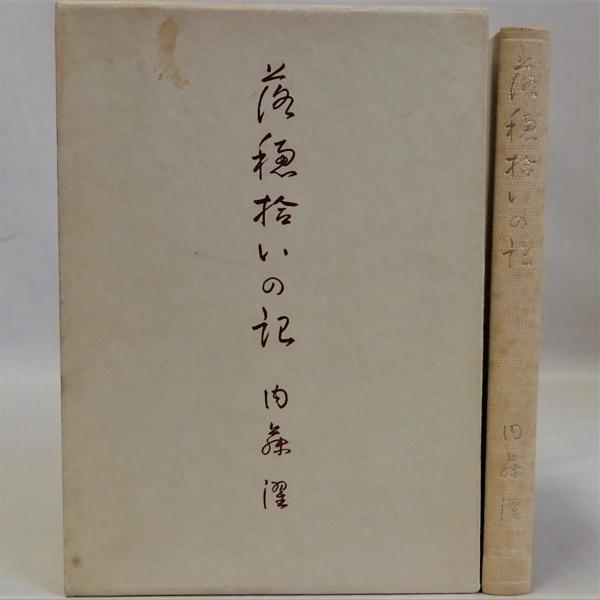 落穂拾いの記
内藤濯
落穂拾いの記
内藤濯